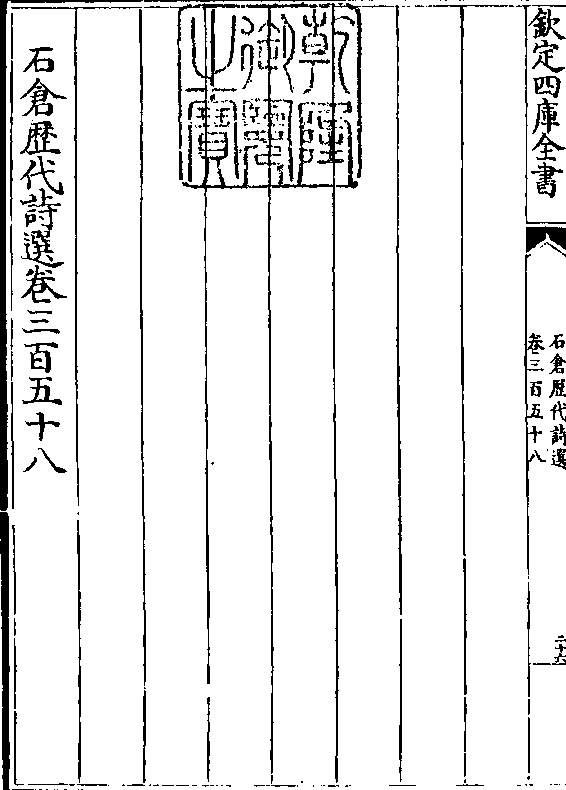 欽定四庫全書
石倉歴代詩選
卷三百五十八
二十六
乾隆
御覽
之寶
石倉歴代詩選卷三百五十八